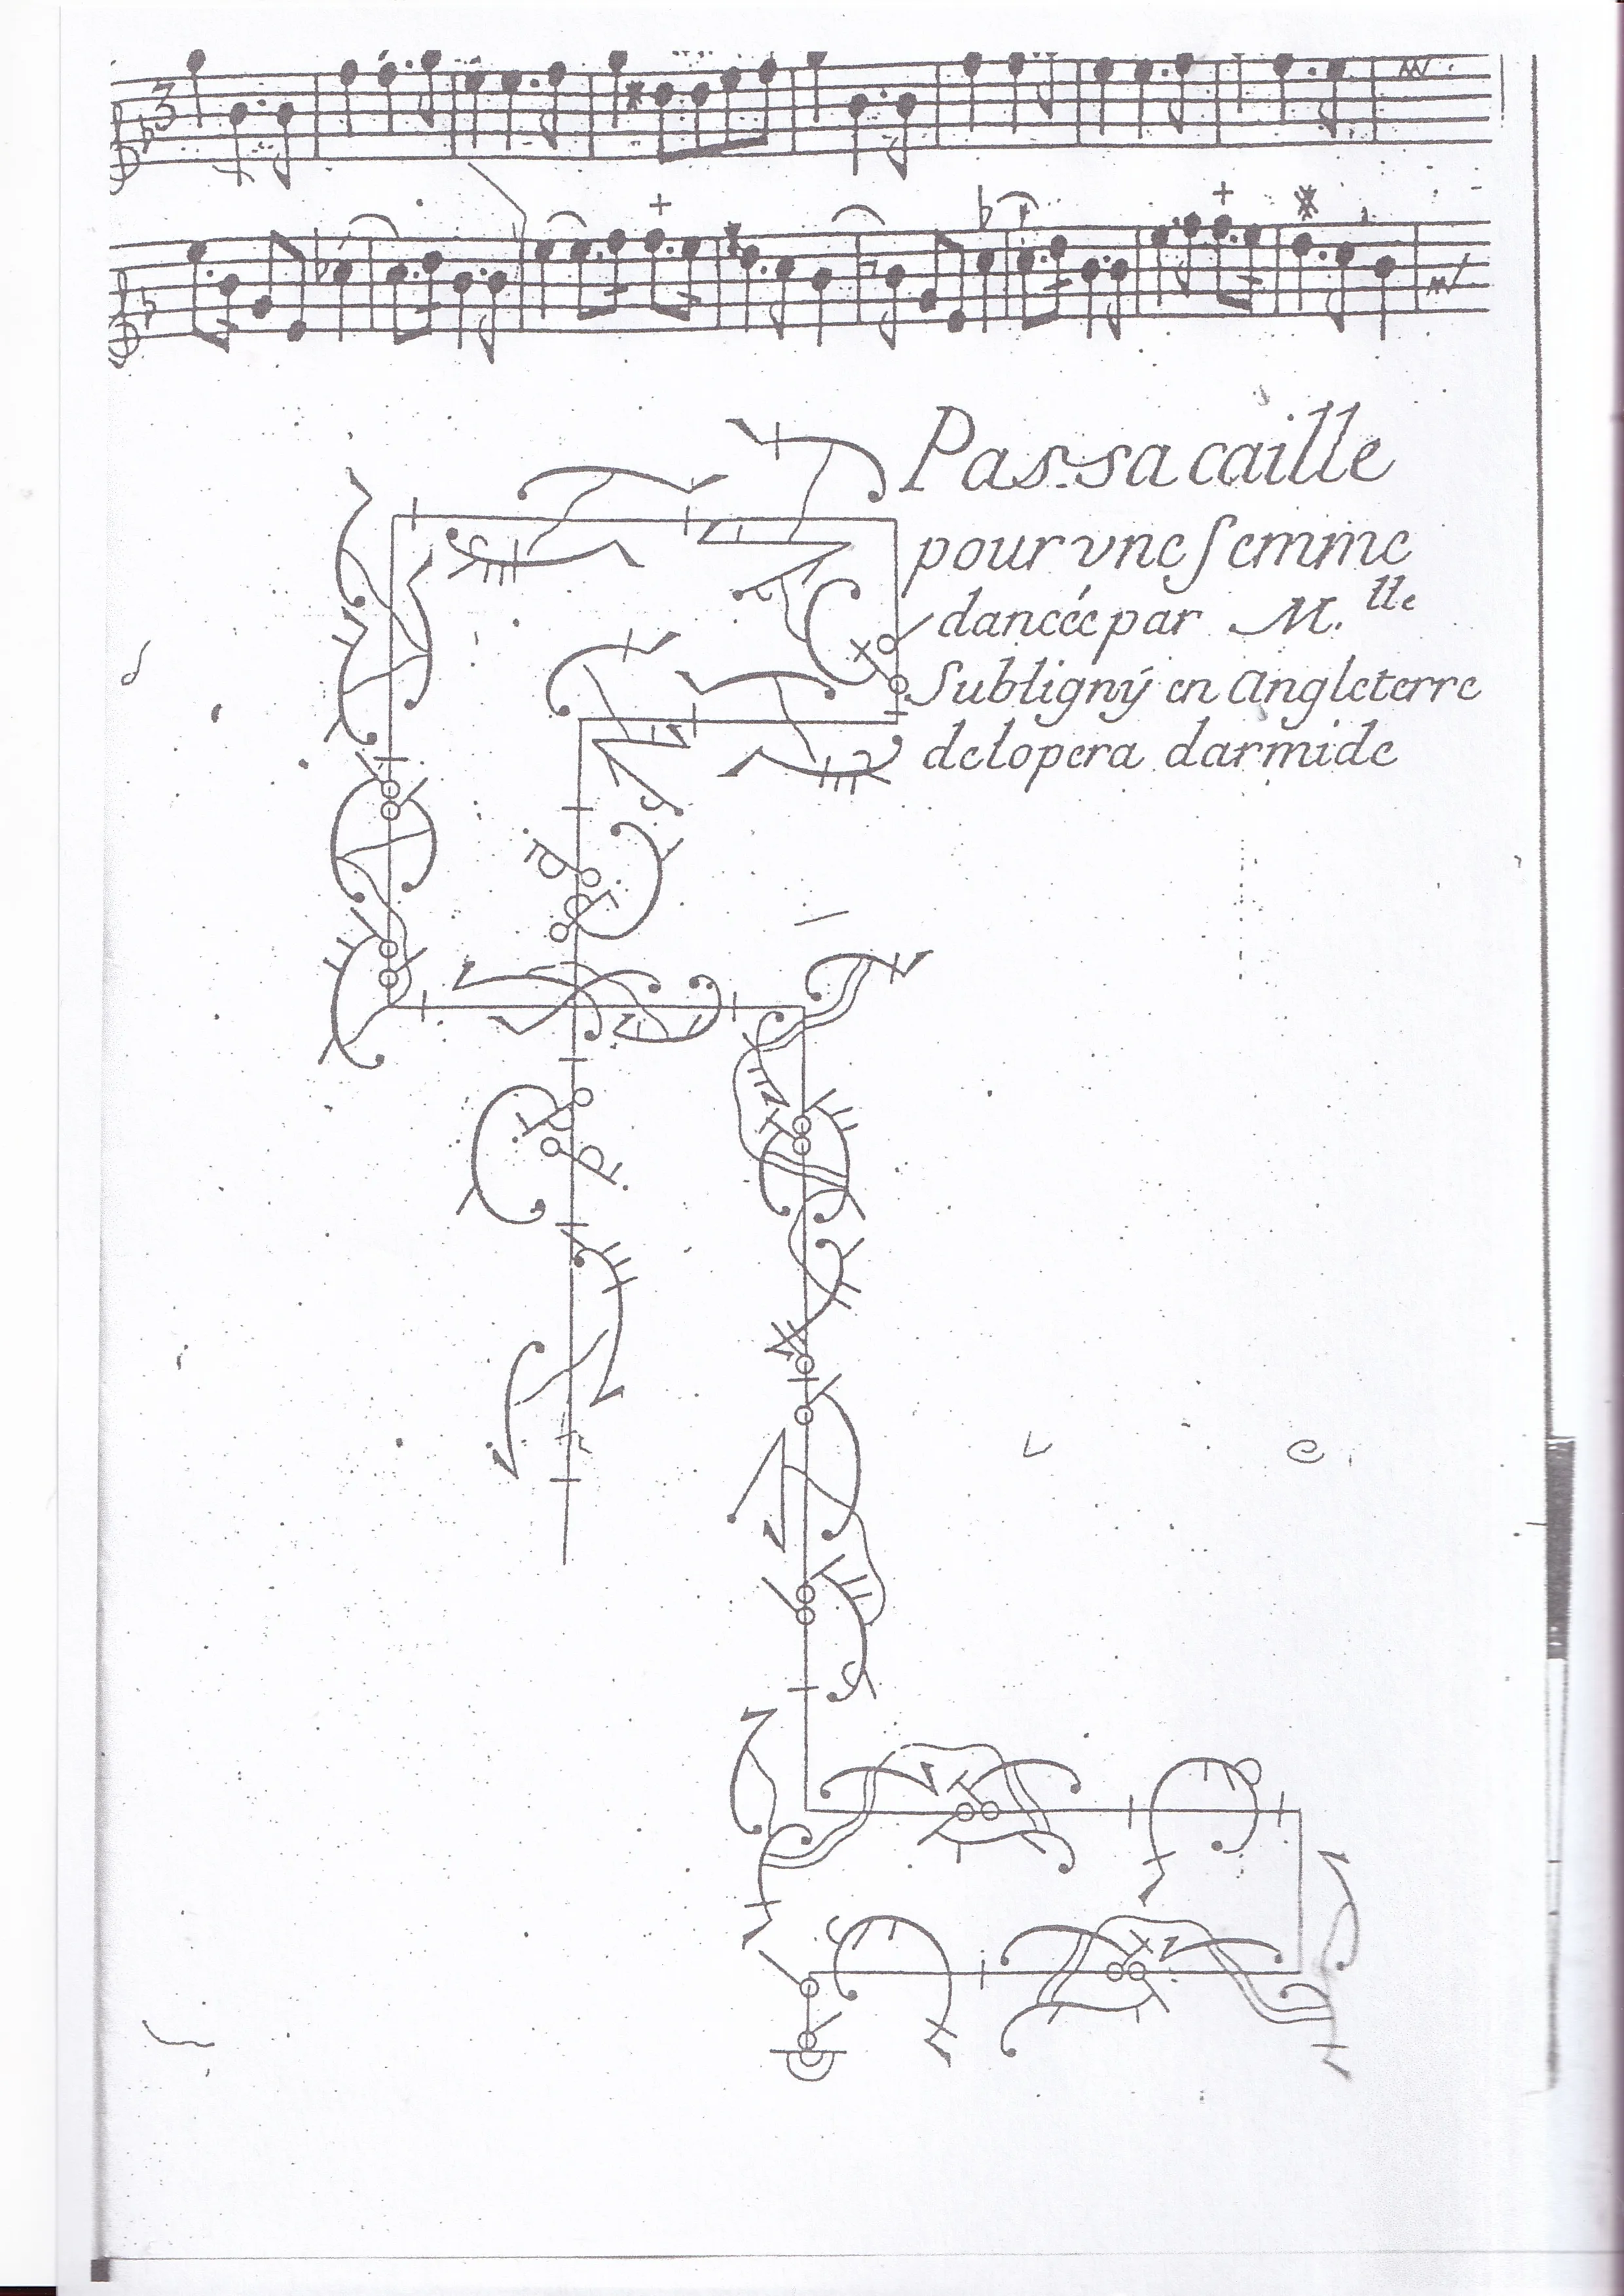 Passacaille
pour vne femme
dancée par M.lle
Subligný en Angleterre
delopera darmide